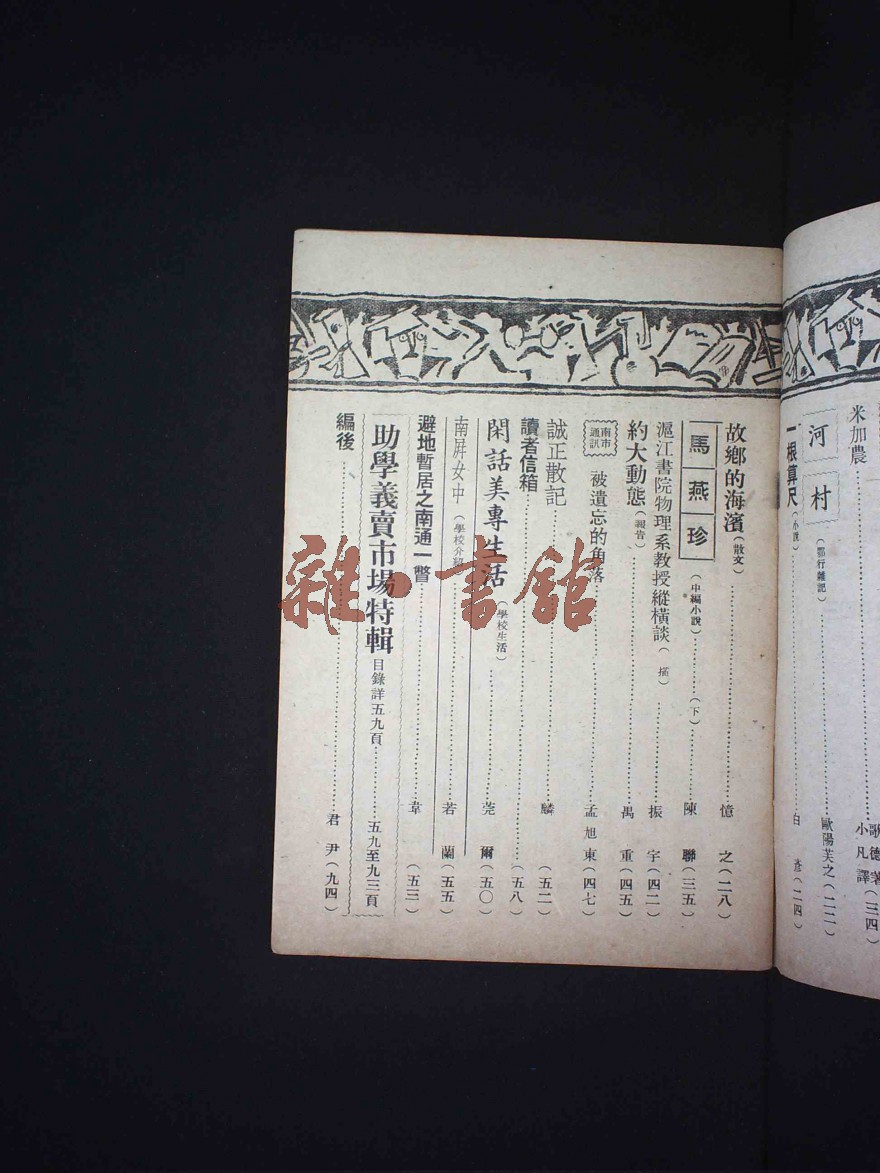 米加農 歌德著 小凡譯(三四)
河村(鄂行雜記) 歐陽芙之(二二)
一根算尺(小說) 白
故鄉的海濱(散文) 憶之(二八)
馬燕珍(中編小說)(下) 陳聯(三五)
滬江書院物理系教授縱橫談( 描) 振宇(四二)
約大動態(報告) 禺重(四五)
南市通訊 被遺忘的角落 孟旭東(四七)
誠正散記 麟(五二)
讀者信箱(五八)
閑話美專生活(學校生活) 莞爾(五〇)
南屏女中(學校介紹) 若蘭(五五)
避地暫居之南通一瞥 韋(五三)
助學義賣市場特輯 目錄詳五九頁 五九至九三頁
編後 君尹(九四)
雜·書館